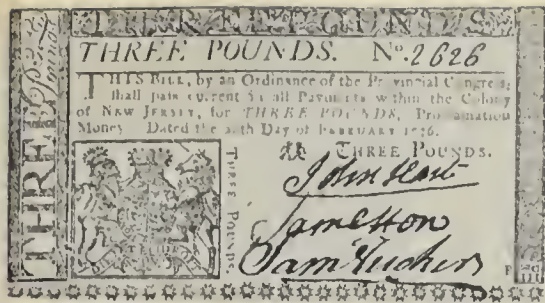 THREE POUNDS.
THREE POUNDS. Nº. 2626
THIS BILL, by an Ordinance of the Provincial Congress,
shall pass current in all Payments within the Colony
of NEW JERSEY, for THREE POUNDS, Proclamation
Money. Dated the 20th Day of FEBRUARY 1776.
THREE POUNDS.
John Hart
THREE POUNDS.
Sam Tucker
THREE